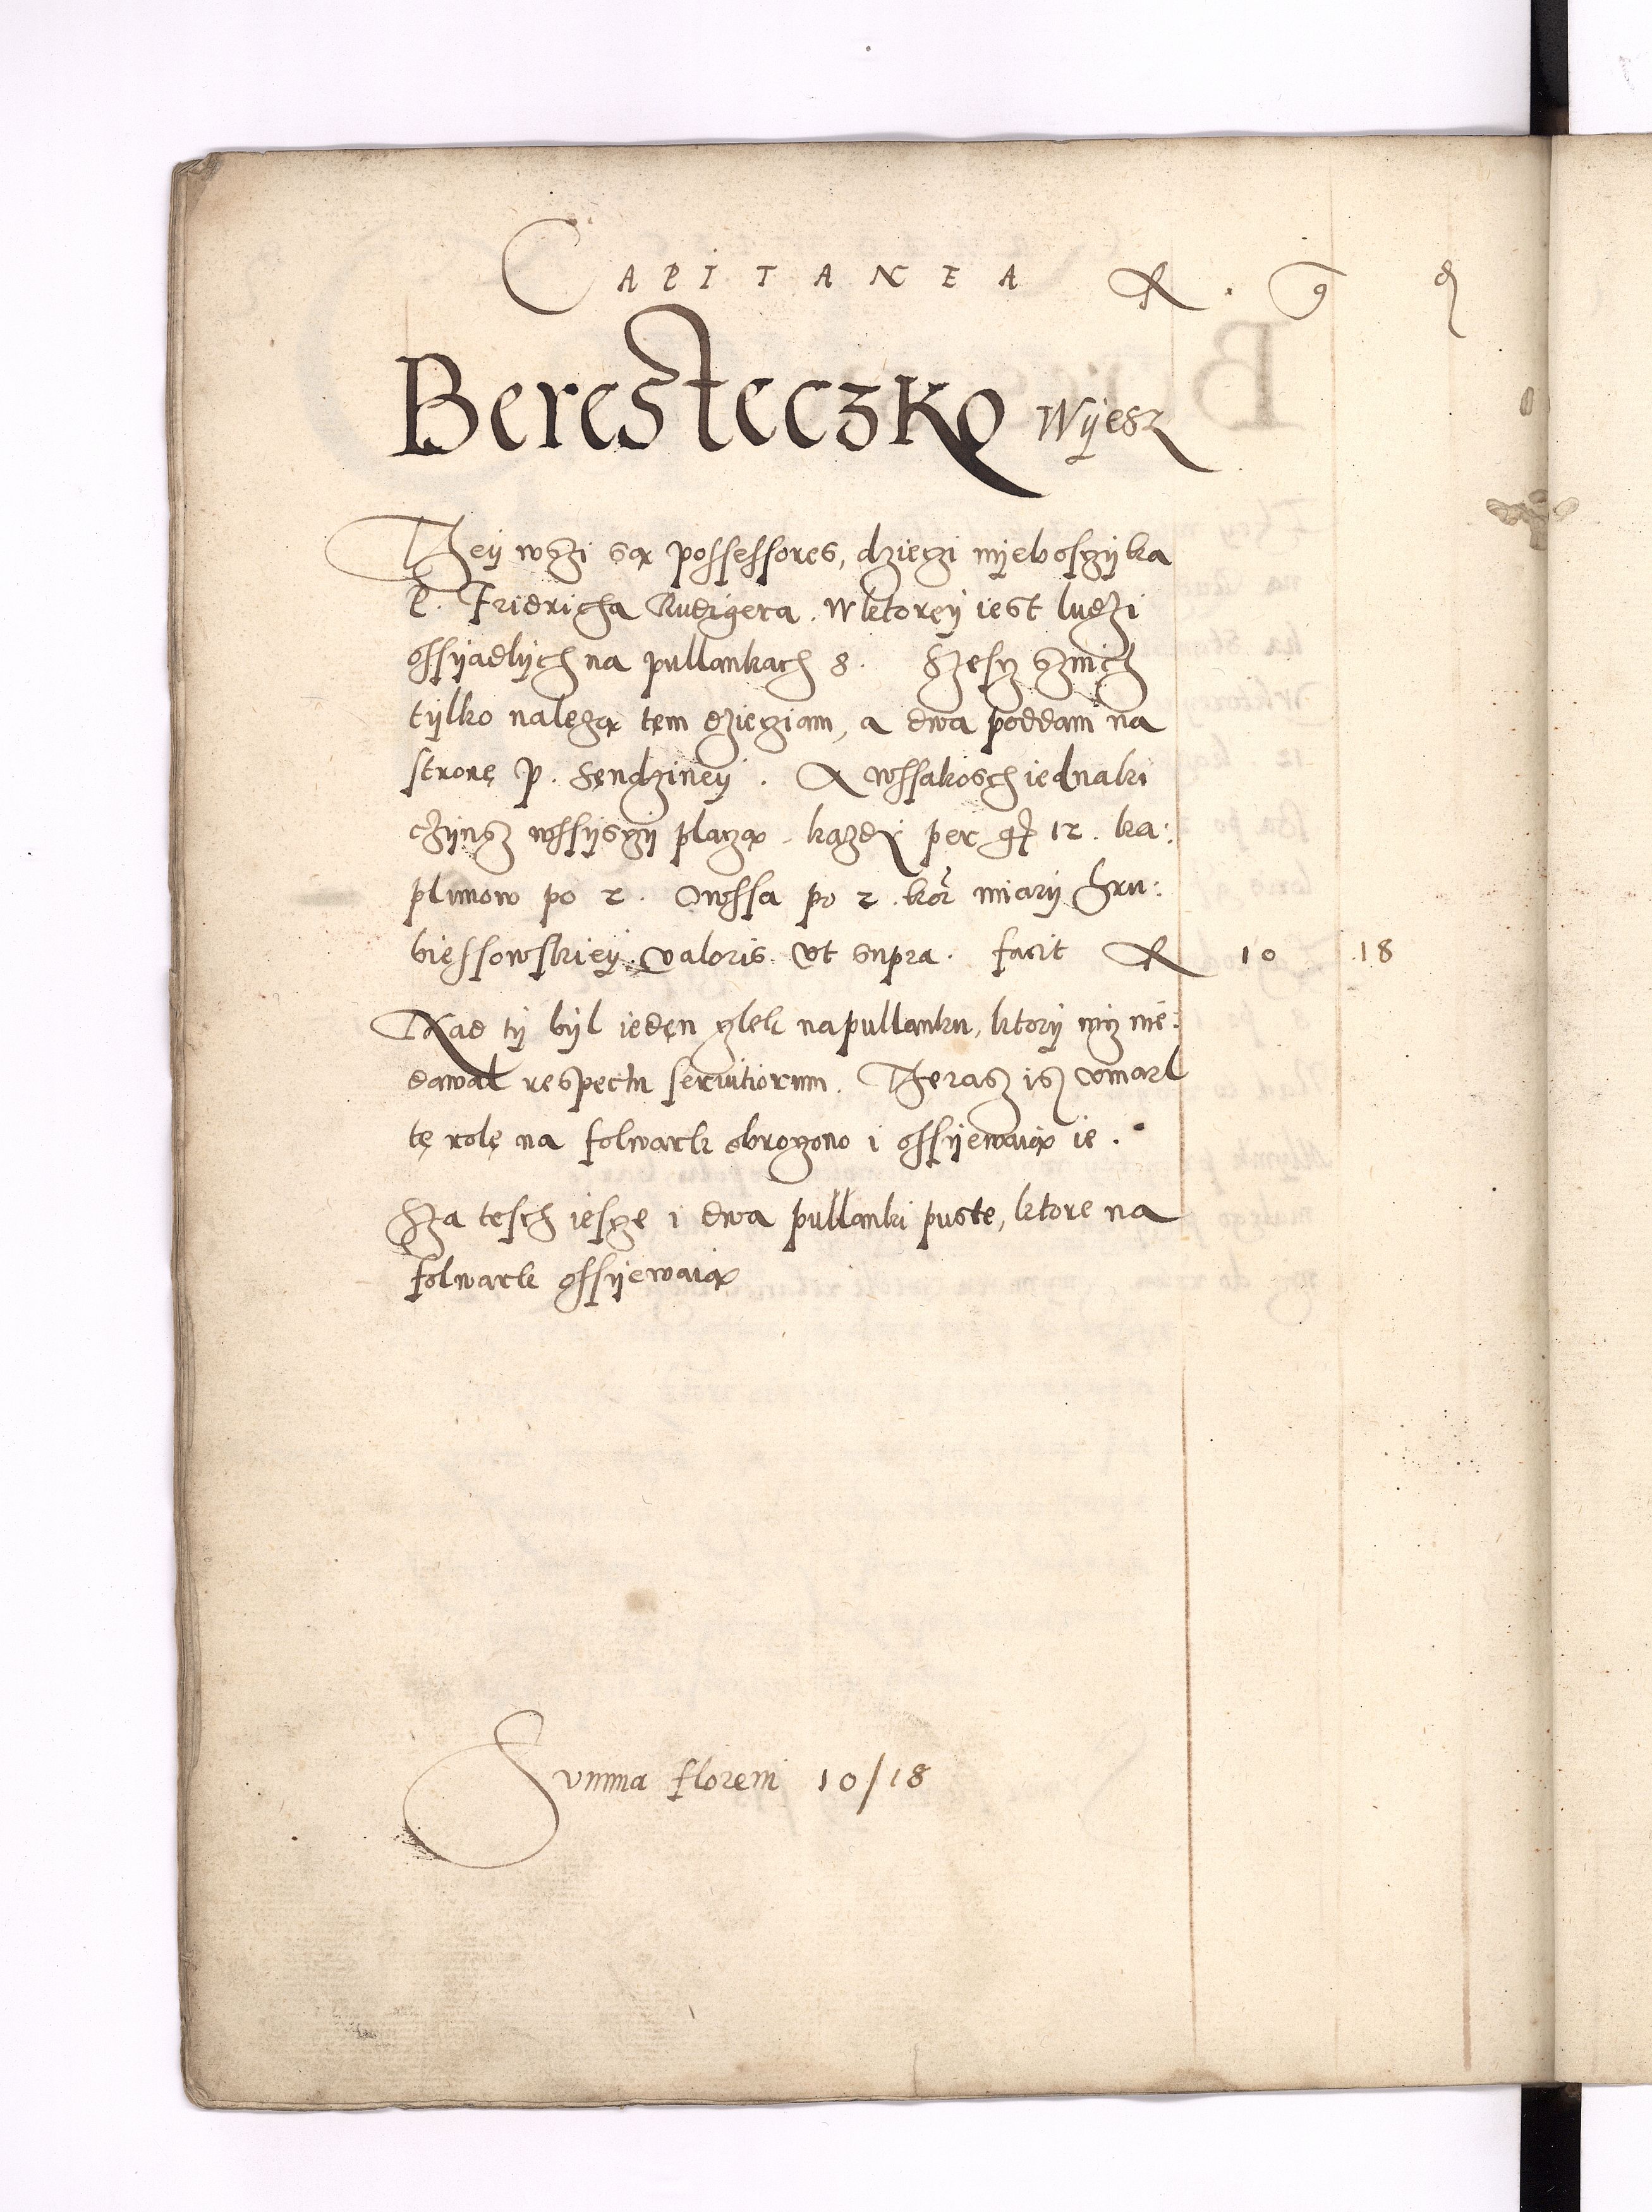 CAPITANEA fl. g d
Beresteczko Wÿesz
Theÿ wszi są possessores, dzieczi nÿeboszyka
P. Fridricha Rudigera. W ktoreÿ iest ludzi
ossÿadlÿch na pullankach 8. Szescz sznich
tÿlko nalezą tem dzieciam, a dwa poddani na
stronę p. Sendzineÿ. A wssakosch iednaki
czÿnsz wssÿsczÿ placzą. kazdÿ per gr 12. ka:
plunow po 2. Owssa po 2. kor miarÿ Hru:
biessowskieÿ. valoris. vt supra. facit fl 10 18
Nad tÿ bÿl ieden czlek na pullanku, ktorÿ nicz nie:
dawal respectu seruitiorum. Therasz isz vmarl
tę rolę na folwark obroczono i ossÿewaią ie.
Sza tesch iescze i dwa pullanki puste, ktore na
folwark ossÿewaią
Summa floreni 10/18